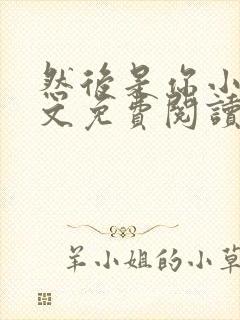 然後是你小
文免費閱讀
羊小姐的小草